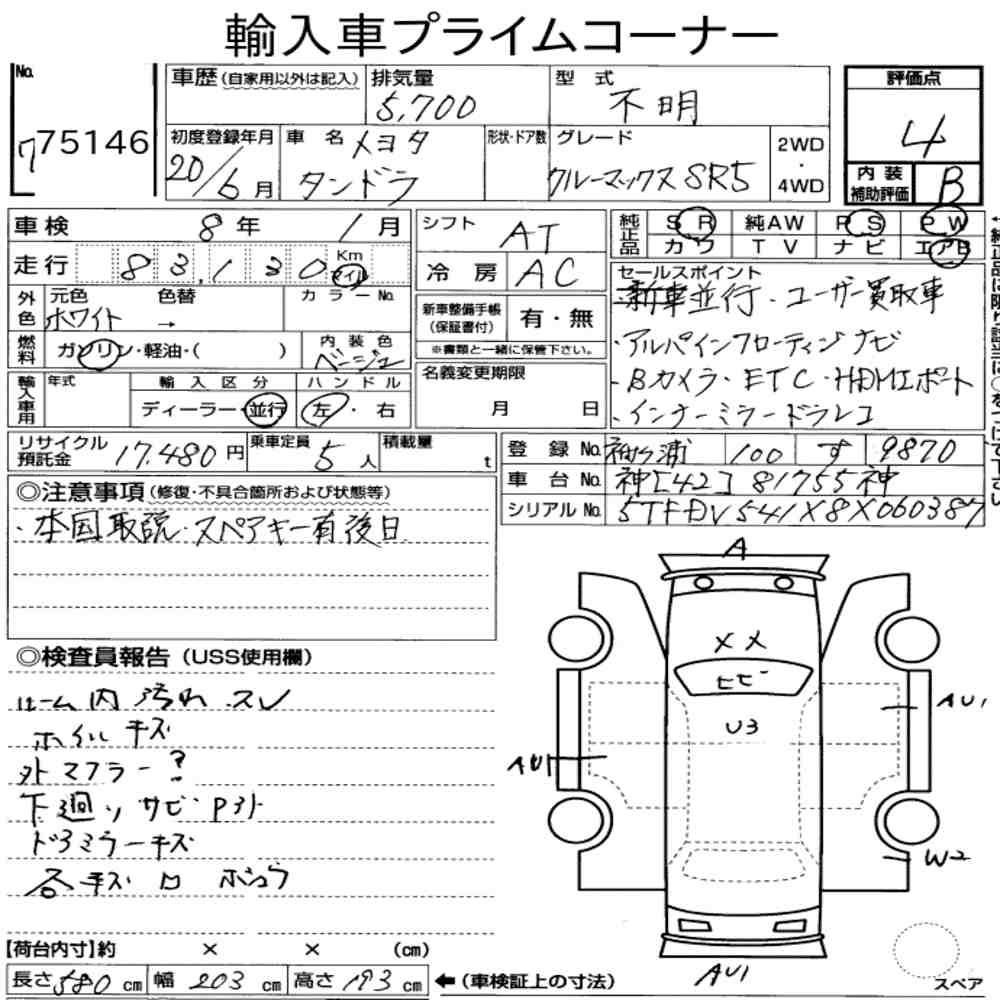 輸入車プライムコーナー
No.
775146
車歴(自家用以外は記入)
排気量
5,700
型式
不明
評価点
4
初度登録年月
20/6月
車名
トヨタ
タンドラ
形状・ドア数
グレード
クルーマックスSR5
2WD
・
4WD
内装
補助評価
B
車検 8年 1月
シフト AT
純正品
SR 純AW PS PW
カワ TV ナビ エアB
走行 83,130 Km
マイル
冷房 AC
セールスポイント
・新車並行・ユーザー買取車
・アルパインフローティングナビ
・Bカメラ・ETC・HDMIポート
・インナーミラードラレコ
外色
元色 色替 カラーNo.
ホワイト →
新車整備手帳
(保証書付)
有・無
※書類と一緒に保管下さい。
燃料
ガソリン・軽油・( )
内装色
ベージュ
名義変更期限
月 日
輸入車用
年式
輸入区分
ハンドル
ディーラー・並行
左・右
リサイクル
預託金
17,480円
乗車定員
5人
積載量
t
登録No. 袖ヶ浦 100 す 9870
車台No. 神[42]81755神
シリアルNo. 5TFDV541X8X060387
◎注意事項(修復・不具合箇所および状態等)
・本国取説・スペアキー有後日
◎検査員報告(USS使用欄)
ルーム内汚れ スレ
ホイルキズ
外マフラー?
下廻りサビ P外
ドアミラーキズ
各キズ
A
××
ヒビ
U3
AU1
AU1
W2
AU1
【荷台内寸】約 × × (cm)
長さ580cm 幅203cm 高さ193cm
←(車検証上の寸法)
スペア